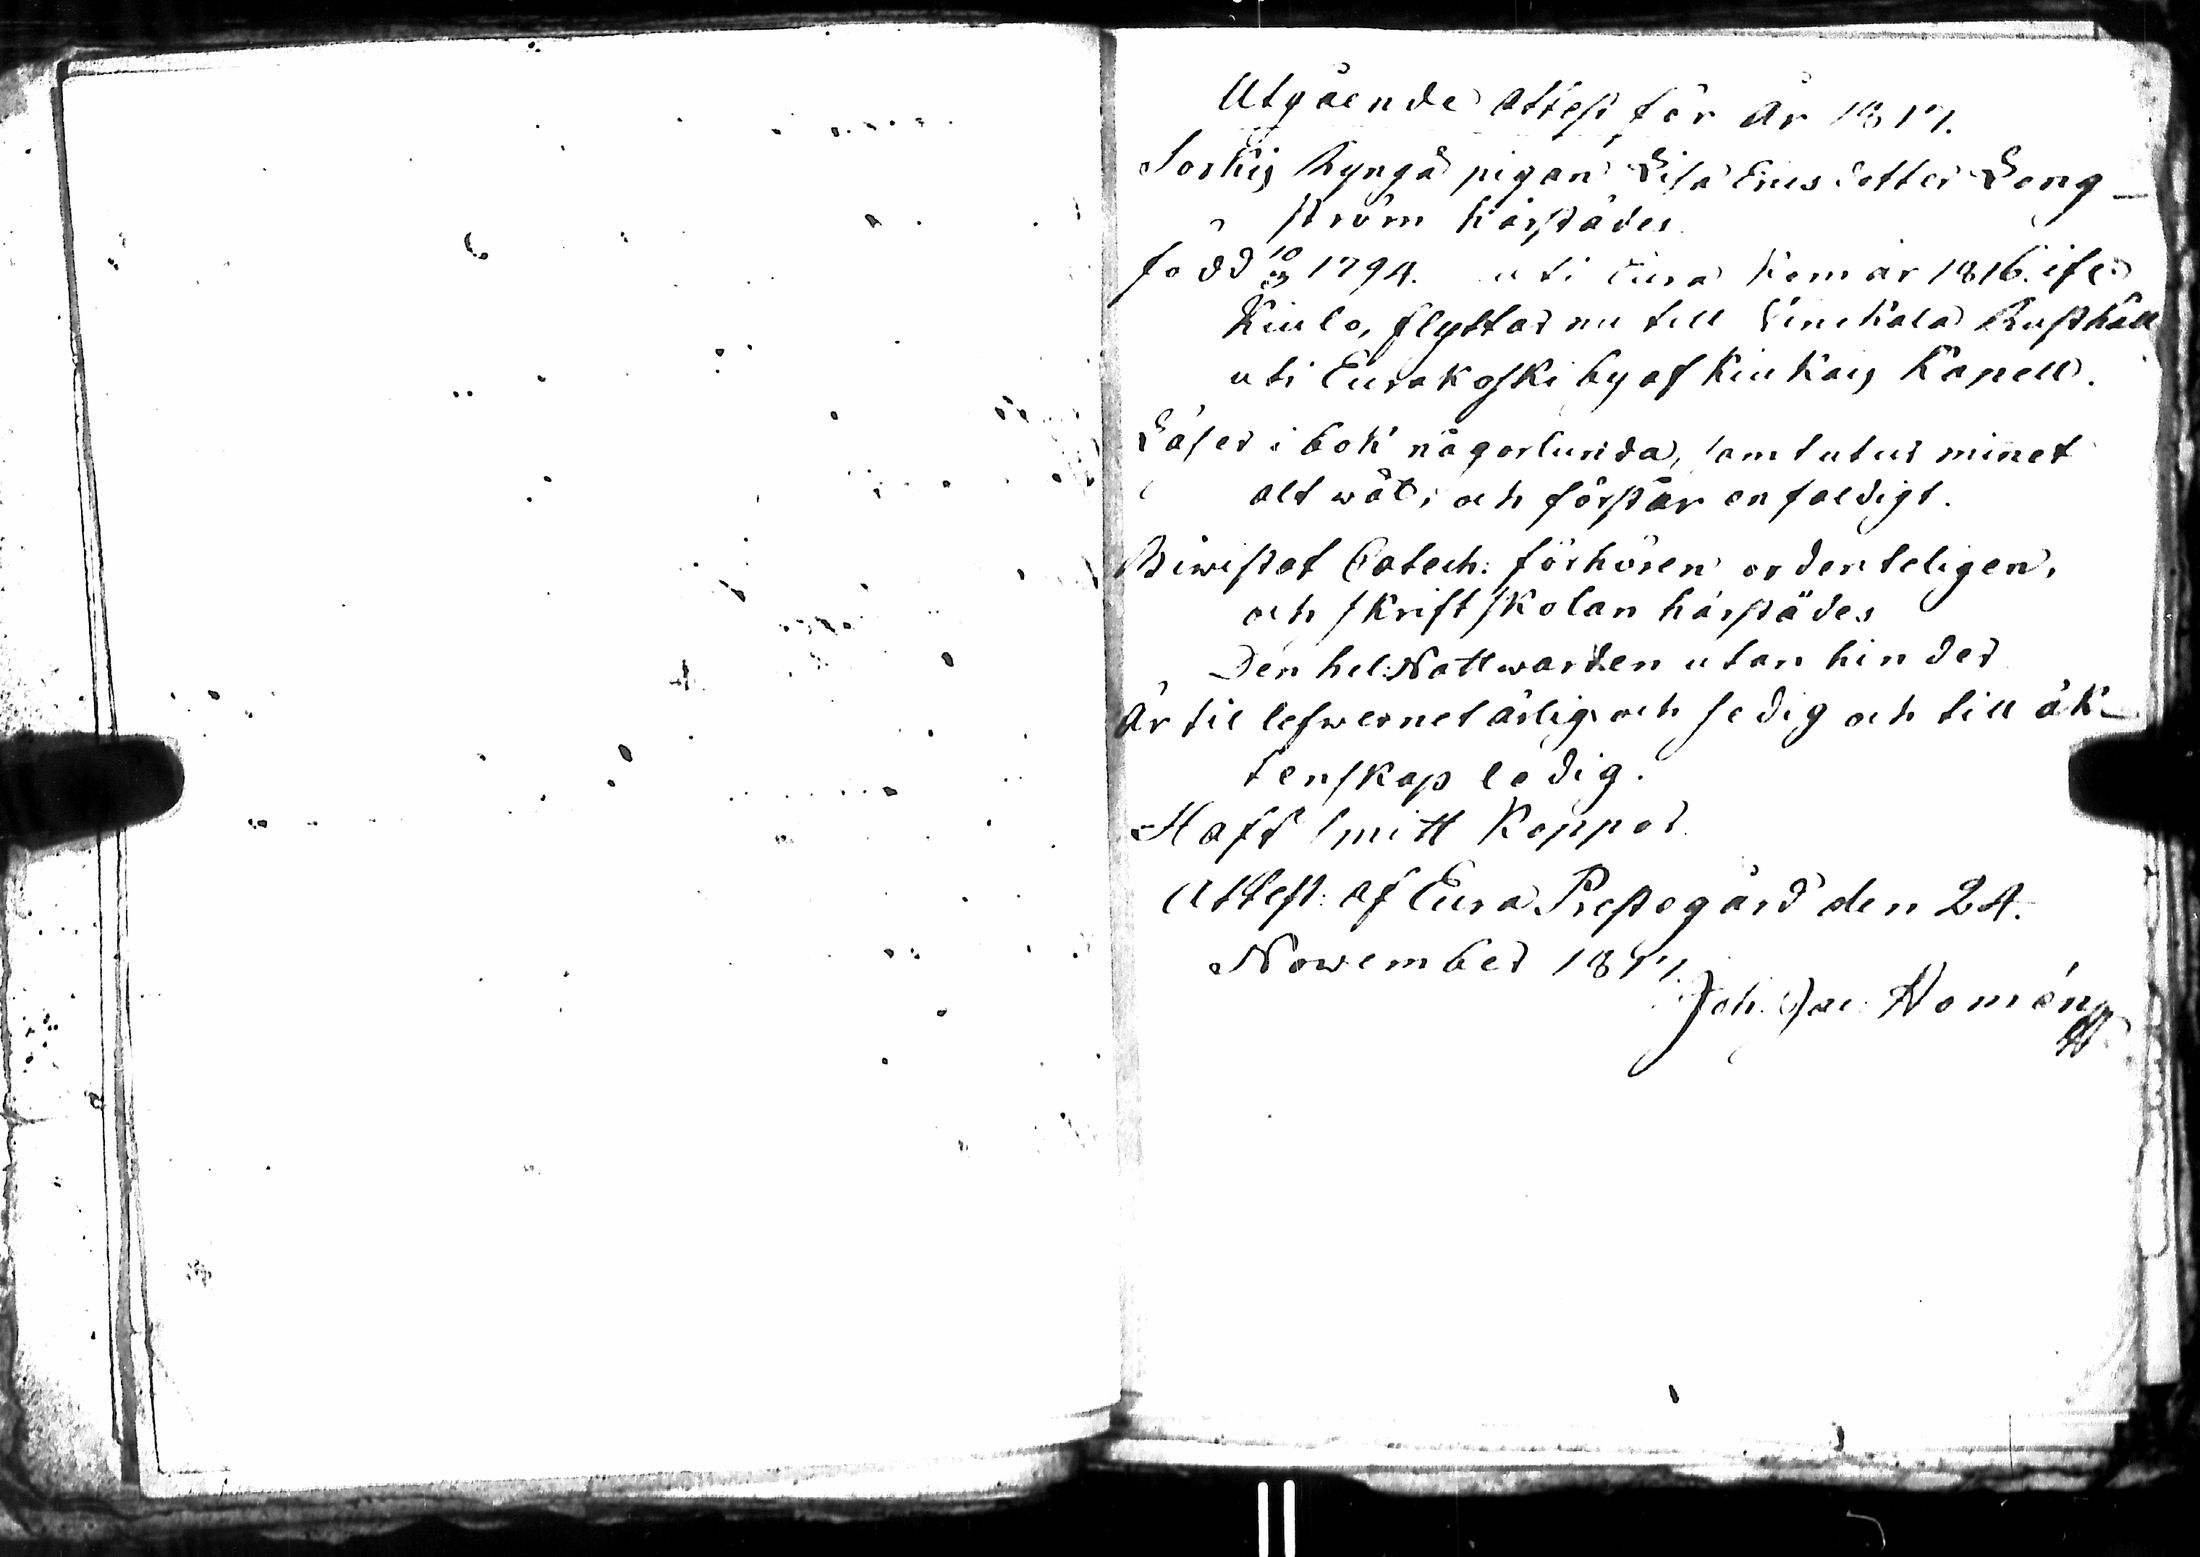 Utgående Attest för År 1817.
Sorkis Ryngä pigan Lisa Ericsdotter Leng-
ström härstädes
född 10/3 1794. uti Eura kom år 1816. ifr:
Kiulo, flyttar nu till Rusthåll
uti Eurakoski by af Kiukais Kapell.
Läser i bok någorlunda, samt utur minet
alt wäl, och förstår enfaldigt.
Biwistat Catech: förhören ordenteligen,
och skriftskolan härstädes
Den hel: Nattwarden utan hinder
Är til lefwernet ärlig och sedig och till äk-
tenskap ledig.
Haft smitt koppor
Attest: af Eura Prestegård den 24.
November 1817.
Joh: Jac: Homén